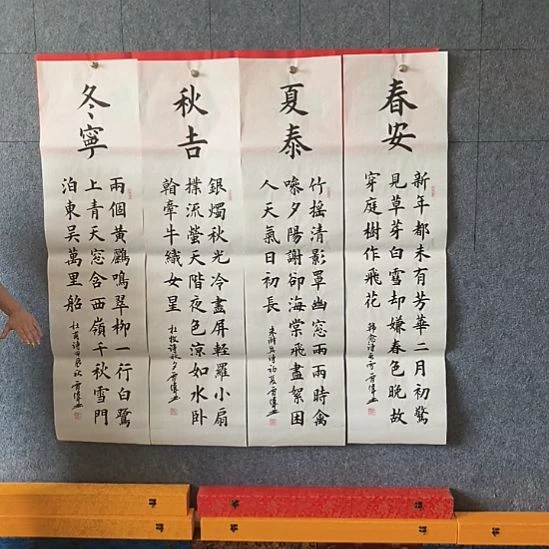 春安
新年都未有芳華二月初驚
見草芽白雪却嫌春色晚故
穿庭樹作飛花 韓愈詩春雪
夏泰
竹搖清影罩幽窓兩兩時禽
噪夕陽謝卻海棠飛盡絮困
人天氣日初長 朱淑真詩初夏
秋吉
銀燭秋光冷畫屏輕羅小扇
撲流螢天階夜色涼如水卧
看牽牛織女星 杜牧詩秋夕
冬寧
兩個黃鸝鳴翠柳一行白鷺
上青天窓含西嶺千秋雪門
泊東吳萬里船 杜甫詩